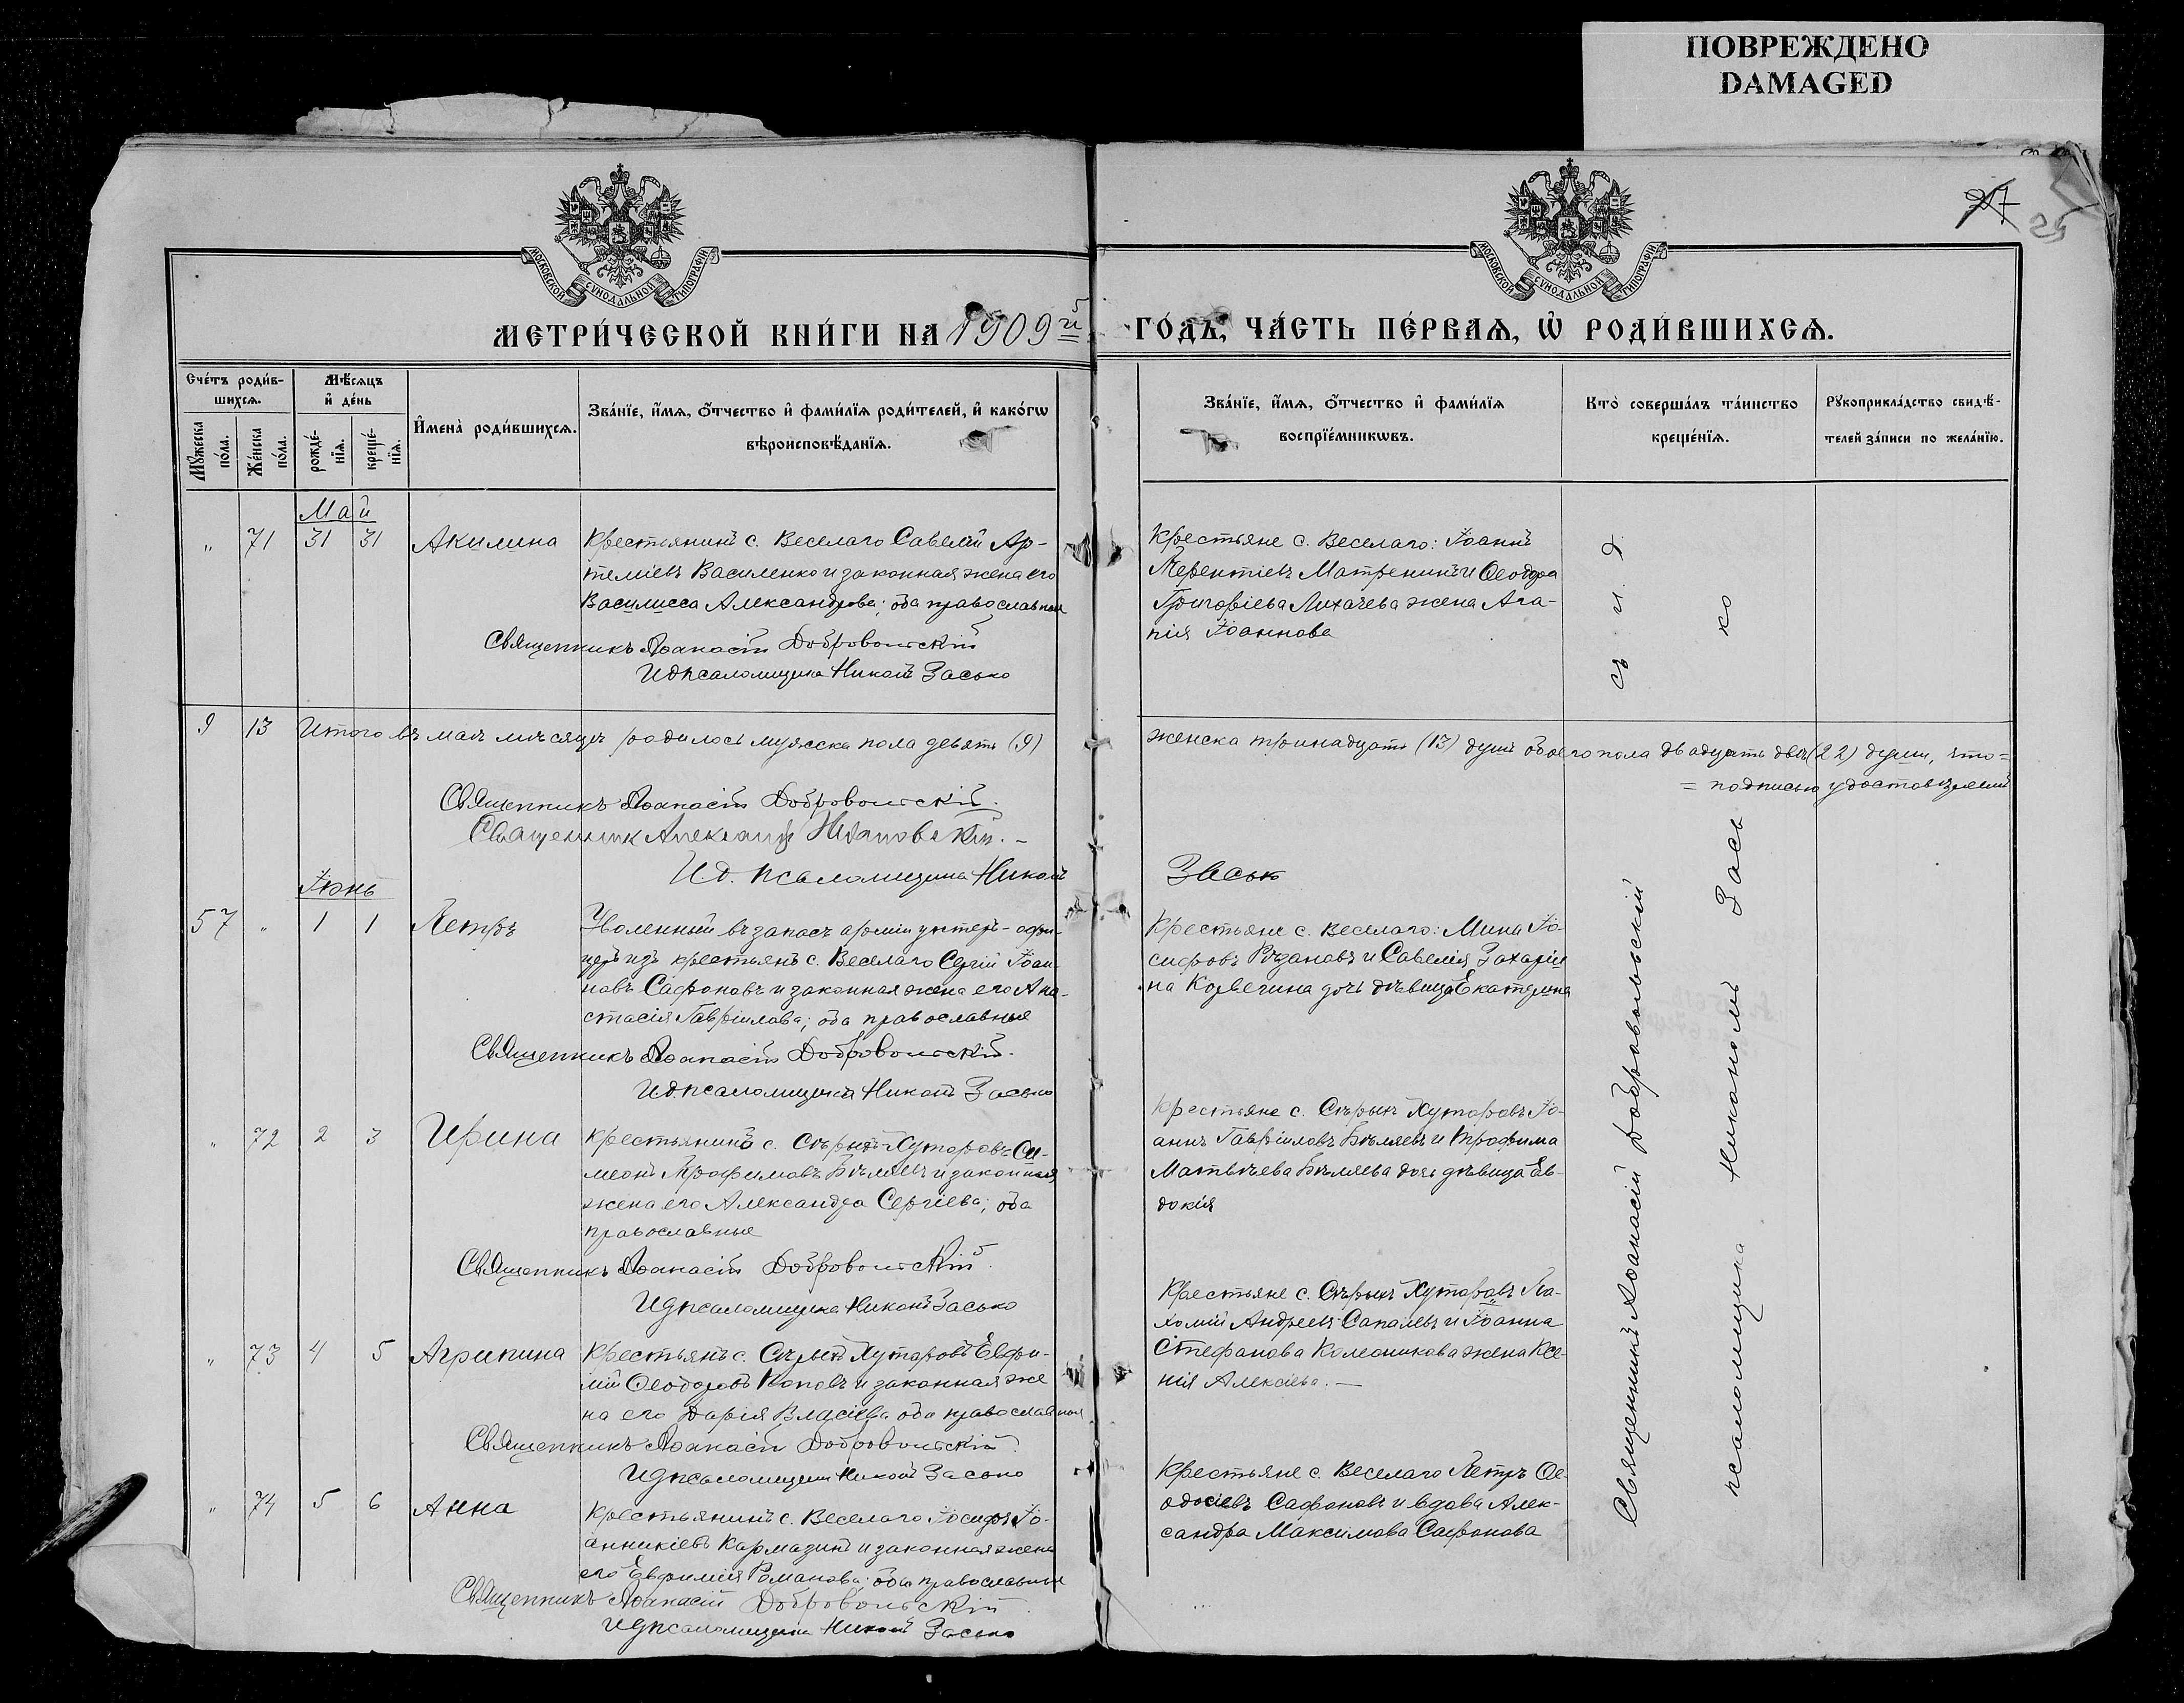 ПОВРЕЖДЕНО
DAMAGED
27
25
МОСКОВСКОЙ СѴНОДАЛЬНОЙ ТИПОГРАФІИ
МОСКОВСКОЙ СѴНОДАЛЬНОЙ ТИПОГРАФІИ
МЕТРИ́ЧЕСКОЙ КНИ́ГИ НА 1909й
ГО́ДЪ, ЧА́СТЬ ПЕ́РВАѦ, Ѡ҆ РОДИ́ВШИХСѦ.
Сче́тъ роди́в-
шихсѧ.
Мѣ́сѧцъ
и҆ де́нь
Мꙋ́жеска по́ла.
Же́нска по́ла.
рожде́-нїѧ.
креще́-нїѧ.
И҆мена̀ роди́вшихсѧ.
Зва́нїе, и҆́мѧ, ѻ҆́тчество и҆ фами́лїѧ роди́телей, и҆ како́гѡ
вѣроисповѣ́данїѧ.
Зва́нїе, и҆́мѧ, ѻ҆́тчество и҆ фами́лїѧ
воспрїе́мникѡвъ.
Кто̀ соверша́лъ та́инство
креще́нїѧ.
Рꙋкоприкла́дство свидѣ́-
телей за́писи по жела́нїю.
Май
" 71 31 31 Акилина
Крестьянинъ с. Веселаго Савелій Ар-
теміевъ Василенко и законная жена его
Василисса Александрова; оба православные
Священникъ Аѳанасій Добровольскій
И д псаломщика Никонъ Засько
Крестьяне с. Веселаго: Іоаннъ
Терентіевъ Матренинъ и Ѳеодора
Григоріева Лихачева жена Ага-
пія Іоаннова
9 13 Итого въ маѣ мѣсяцѣ родилось мужеска пола девять (9)
женска тринадцать (13) душъ обоего пола двадцать двѣ (22) души, что=
= подписью удостовѣряемъ
Священникъ Аѳанасій Добровольскій.
Священник Александр
И.д. псаломщика Никонъ Засько
Іюнь
57 " 1 1 Петръ
Уволенный въ запасъ арміи унтеръ-офи-
церъ изъ крестьянъ с. Веселаго Сергій Іоан-
новъ Сафоновъ и законная жена его Ана-
стасія Гавріилова; оба православные
Священникъ Аѳанасій Добровольскій.
И.д. псаломщика Никонъ Засько
Крестьяне с. Веселаго: Мина Іо-
сифовъ Рѣзановъ и Савелія Захарьи
на дочь дѣвица Екатерина
" 72 2 3 Ирина
Крестьянинъ с. Сѣрыхъ Хуторовъ Си-
меонъ Трофимовъ Бѣляевъ и законная
жена его Александра Сергіева; оба
православные
Священникъ Аѳанасій Добровольскій.
И д псаломщика Никонъ Засько
Крестьяне с. Сѣрыхъ Хуторовъ Іо-
аннъ Гавріиловъ Бѣляевъ и Трофима
Матвѣева Бѣляева дочь дѣвица Ев-
докія
" 73 4 5 Агрипина
Крестьянъ с. Сѣрыхъ Хуторовъ Евфи-
мій Ѳеодоровъ Поповъ и законная же
на его Дарія Власіева оба православные
Священникъ Аѳанасій Добровольскій.
И д псаломщика Никонъ Засько
Крестьяне с. Сѣрыхъ Хуторовъ Па-
хомій Андреевъ и Іоанна
Стефанова Колесникова жена Ксе-
нія Алексіева.—
" 74 5 6 Анна
Крестьянинъ с. Веселаго Іосифъ Іо-
анникіевъ Кармазинъ и законная жена
его Евфимія Романова; оба православные
Священникъ Аѳанасій Добровольскій
И д псаломщика Никонъ Засько
Крестьяне с. Веселаго Петръ Ѳе-
одосіевъ Сафоновъ и вдова Алек-
сандра Максимова Сафонова
Священникъ Аѳанасій Добровольскій съ и. д.
псаломщика Никономъ Засько